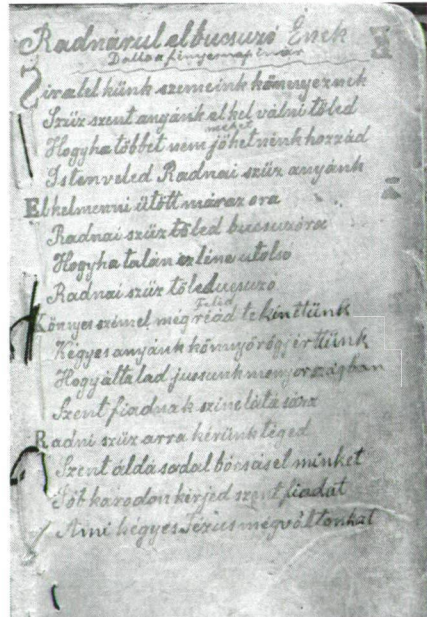 Radnárul elbucsuzó Ének
Dallo a fényes nap
Sir a lelkünk szemeink könnyeznek
Szűz szent anyánk el kel válni tőled
mehet
Hogyha többet nem jöhetnénk hozzád
Isten veled Radnai szűz anyánk
El kel menni ütött már az ora
Radnai szűz töled bussuzóra
Hogyha talán ez léne utolso
Radnai szűz töled ucsuzó
Feléd
Könnyes szimel még réád tekinttünk
Kégyes anyánk könnyörögj érttünk
Hogy általad jussunk menyországban
Szent fiadnak szinelátásárz
Radni szűz arra kérünk téged
Szent áldásadal bócsásel minket
Jób karodon kérjed szent fiadat
Ami kégyes Jézus mégváltonkat